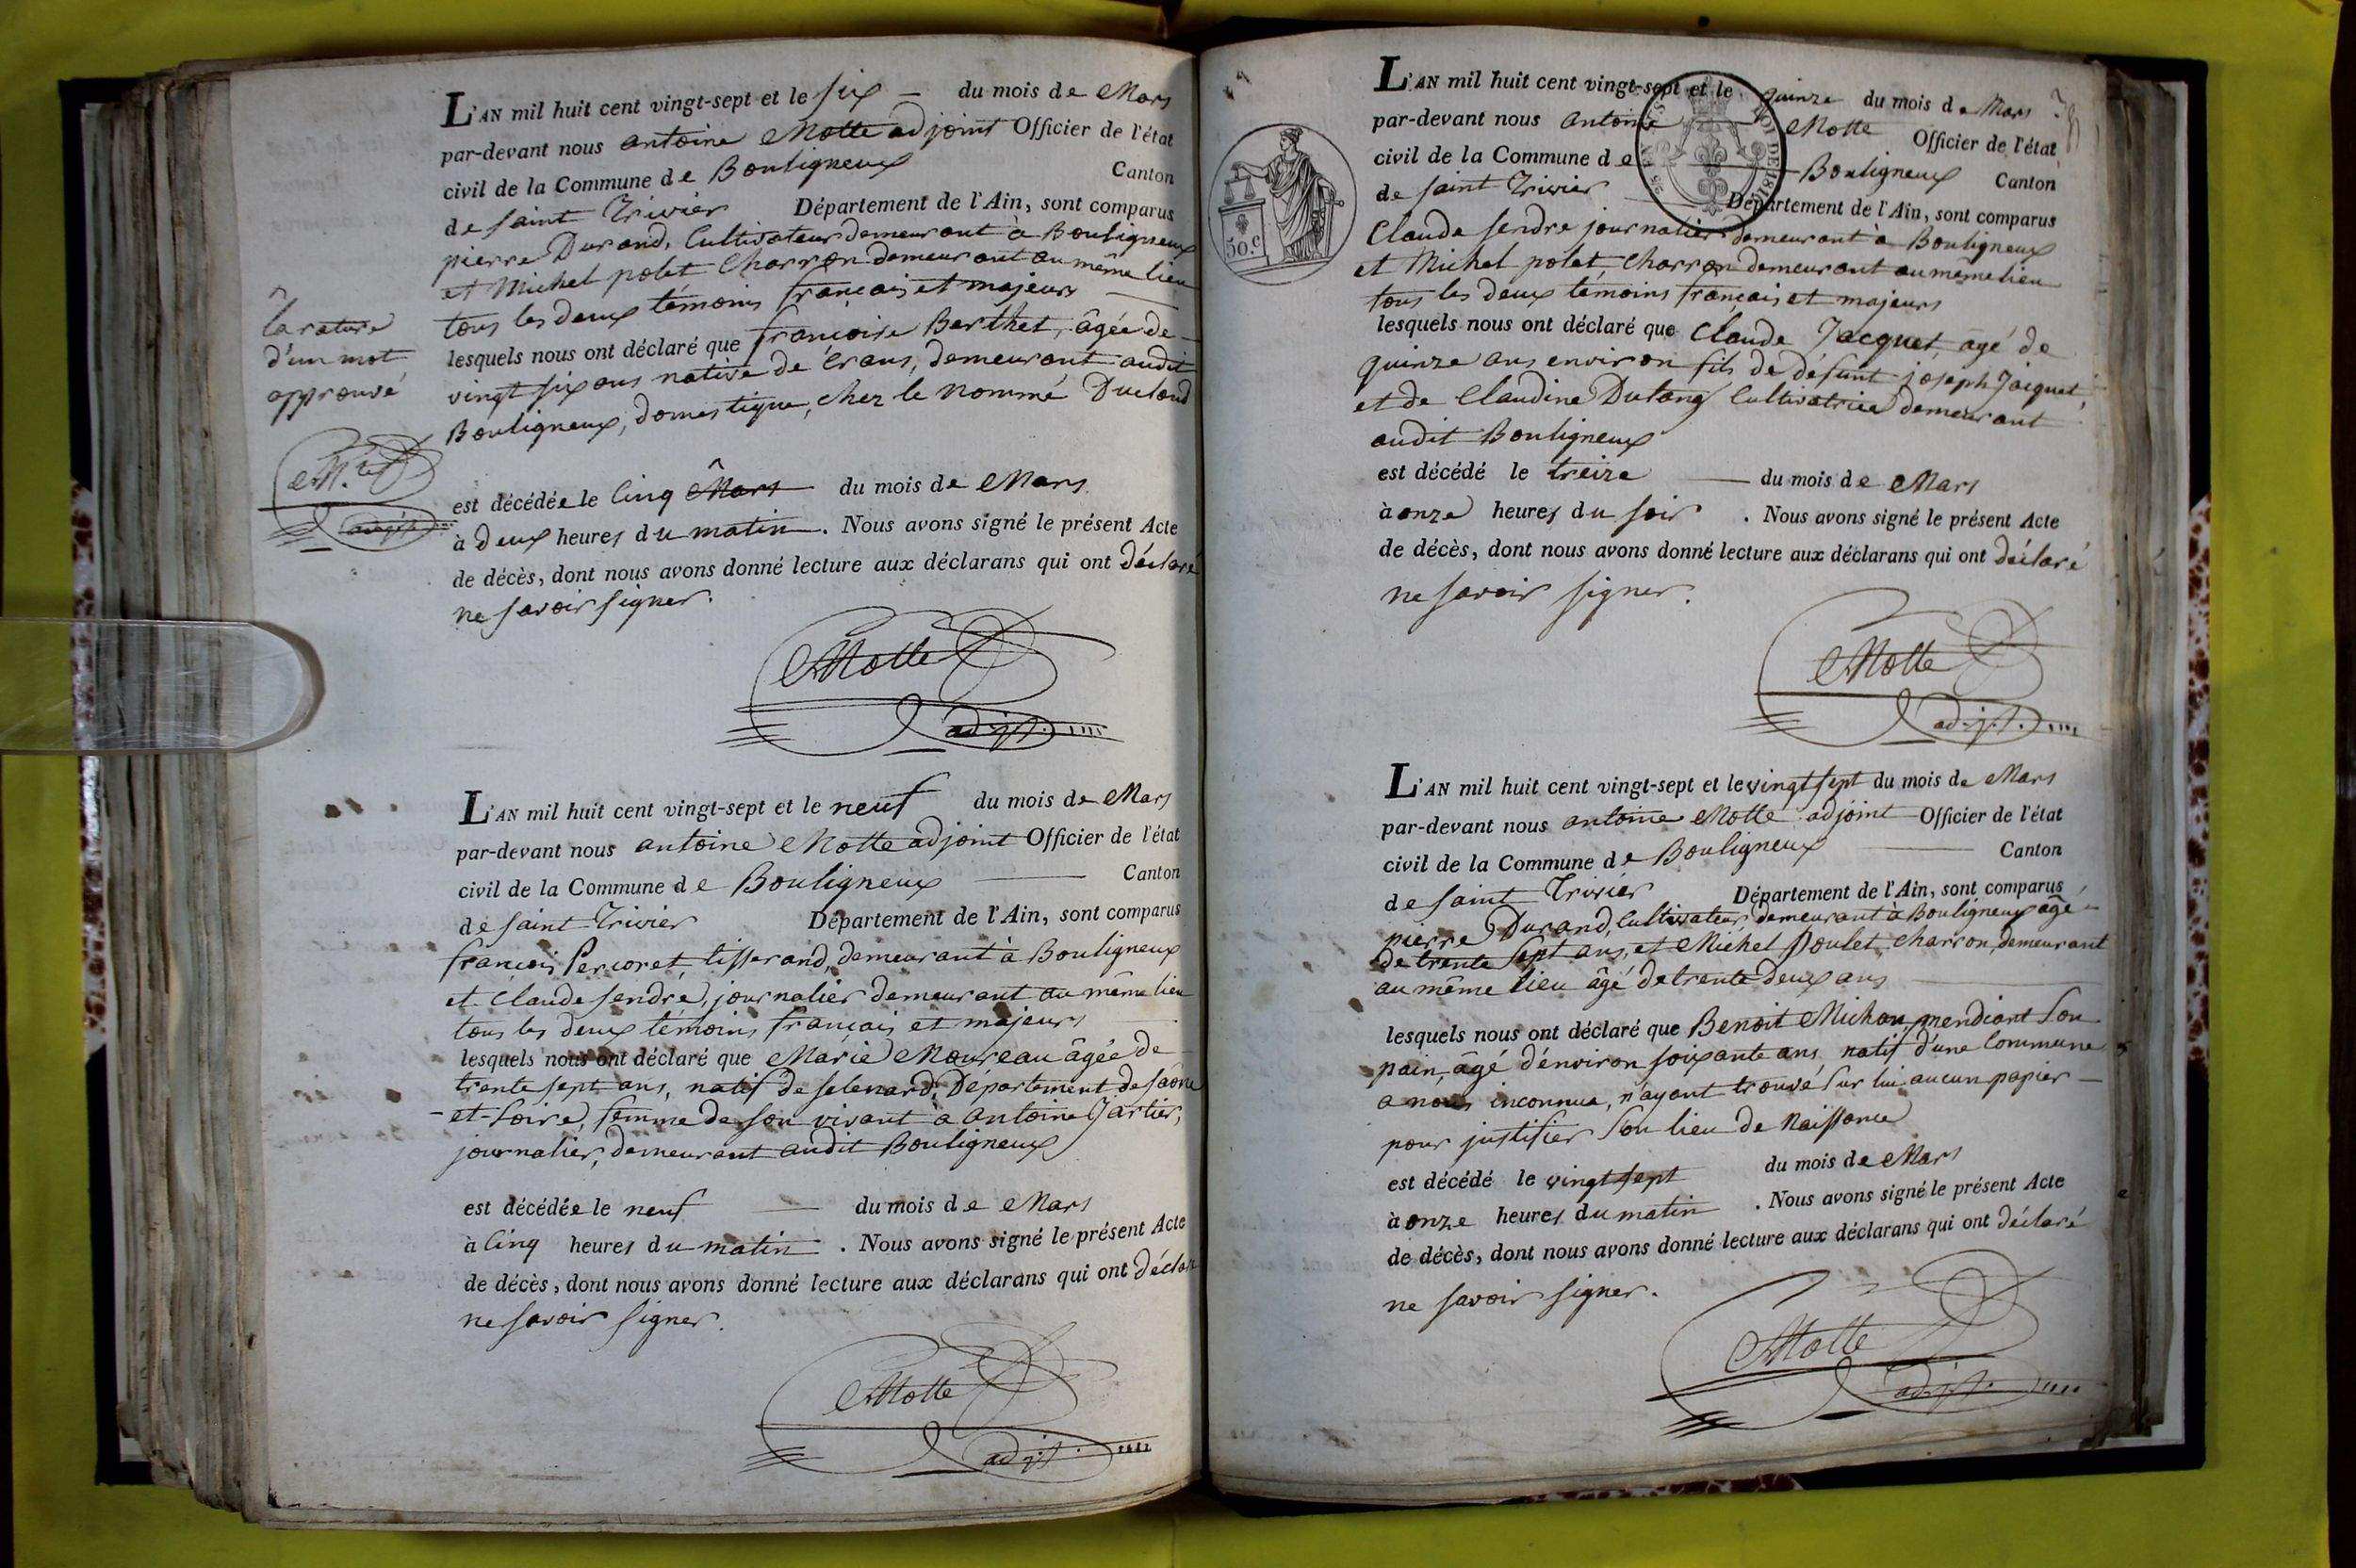 L'AN mil huit cent vingt-sept et le six — du mois de Mars
par-devant nous antoine Motte adjoint Officier de l'état
civil de la Commune de Bouligneux Canton
de saint Trivier Département de l'Ain, sont comparus
pierre Durand, Cultivateur demeurant à Bouligneux
et Michel polet Charron demeurant au même lieu
tous les deux témoins français et majeurs
lesquels nous ont déclaré que françoise Berthet, âgée de
vingt six ans native de Crans, demeurant audit
Bouligneux, domestique, chez le nommé Durand
est décédée le Cinq Mars du mois de Mars
à deux heures du matin. Nous avons signé le présent Acte
de décès, dont nous avons donné lecture aux déclarans qui ont déclaré
ne savoir signer.
Motte
adjt.
la rature
d'un mot
approuvé
M.te
adjt.
L'AN mil huit cent vingt-sept et le neuf du mois de Mars
par-devant nous antoine Motte adjoint Officier de l'état
civil de la Commune de Bouligneux — Canton
de saint Trivier Département de l'Ain, sont comparus
françois Percoret, tisserand, demeurant à Bouligneux
et Claude sendre, journalier demeurant au même lieu
tous les deux témoins français et majeurs
lesquels nous ont déclaré que Marie Moureau âgée de
trente sept ans, natif de selenard, Département de saone
-et-Loire, femme de son vivant à antoine Jartier,
journalier, demeurant audit Bouligneux
est décédée le neuf — du mois de Mars
à Cinq heures du matin. Nous avons signé le présent Acte
de décès, dont nous avons donné lecture aux déclarans qui ont déclaré
ne savoir signer.
Motte
adjt.
L'AN mil huit cent vingt-sept et le quinze du mois de Mars
par-devant nous antoine Motte Officier de l'état
civil de la Commune de Bouligneux Canton
de saint Trivier Département de l'Ain, sont comparus
Claude sendre journalier demeurant à Bouligneux
et Michel polet, charron demeurant au même lieu
tous les deux témoins français et majeurs
lesquels nous ont déclaré que Claude Jacquet, âgé de
quinze ans environ fils de défunt joseph Jacquet,
et de Claudine Dutang Cultivatrice demeurant
audit Bouligneux
est décédé le treize — du mois de Mars
à onze heures du soir. Nous avons signé le présent Acte
de décès, dont nous avons donné lecture aux déclarans qui ont déclaré
ne savoir signer.
Motte
adjt.
50.c
L'AN mil huit cent vingt-sept et le vingt sept du mois de Mars
par-devant nous antoine Motte adjoint Officier de l'état
civil de la Commune de Bouligneux — Canton
de saint Trivier Département de l'Ain, sont comparus
pierre Durand, Cultivateur, demeurant à Bouligneux âgé
de trente sept ans, et Michel poulet, charron, demeurant
au même lieu âgé de trente deux ans
lesquels nous ont déclaré que Benoit Michon, mendiant son
pain, âgé d'environ soixante ans, natif d'une Commune
a nous inconnue, n'ayant trouvé sur lui aucun papier —
pour justifier son lieu de naissance
est décédé le vingt sept du mois de Mars
à onze heures du matin. Nous avons signé le présent Acte
de décès, dont nous avons donné lecture aux déclarans qui ont déclaré
ne savoir signer.
Motte
adjt.